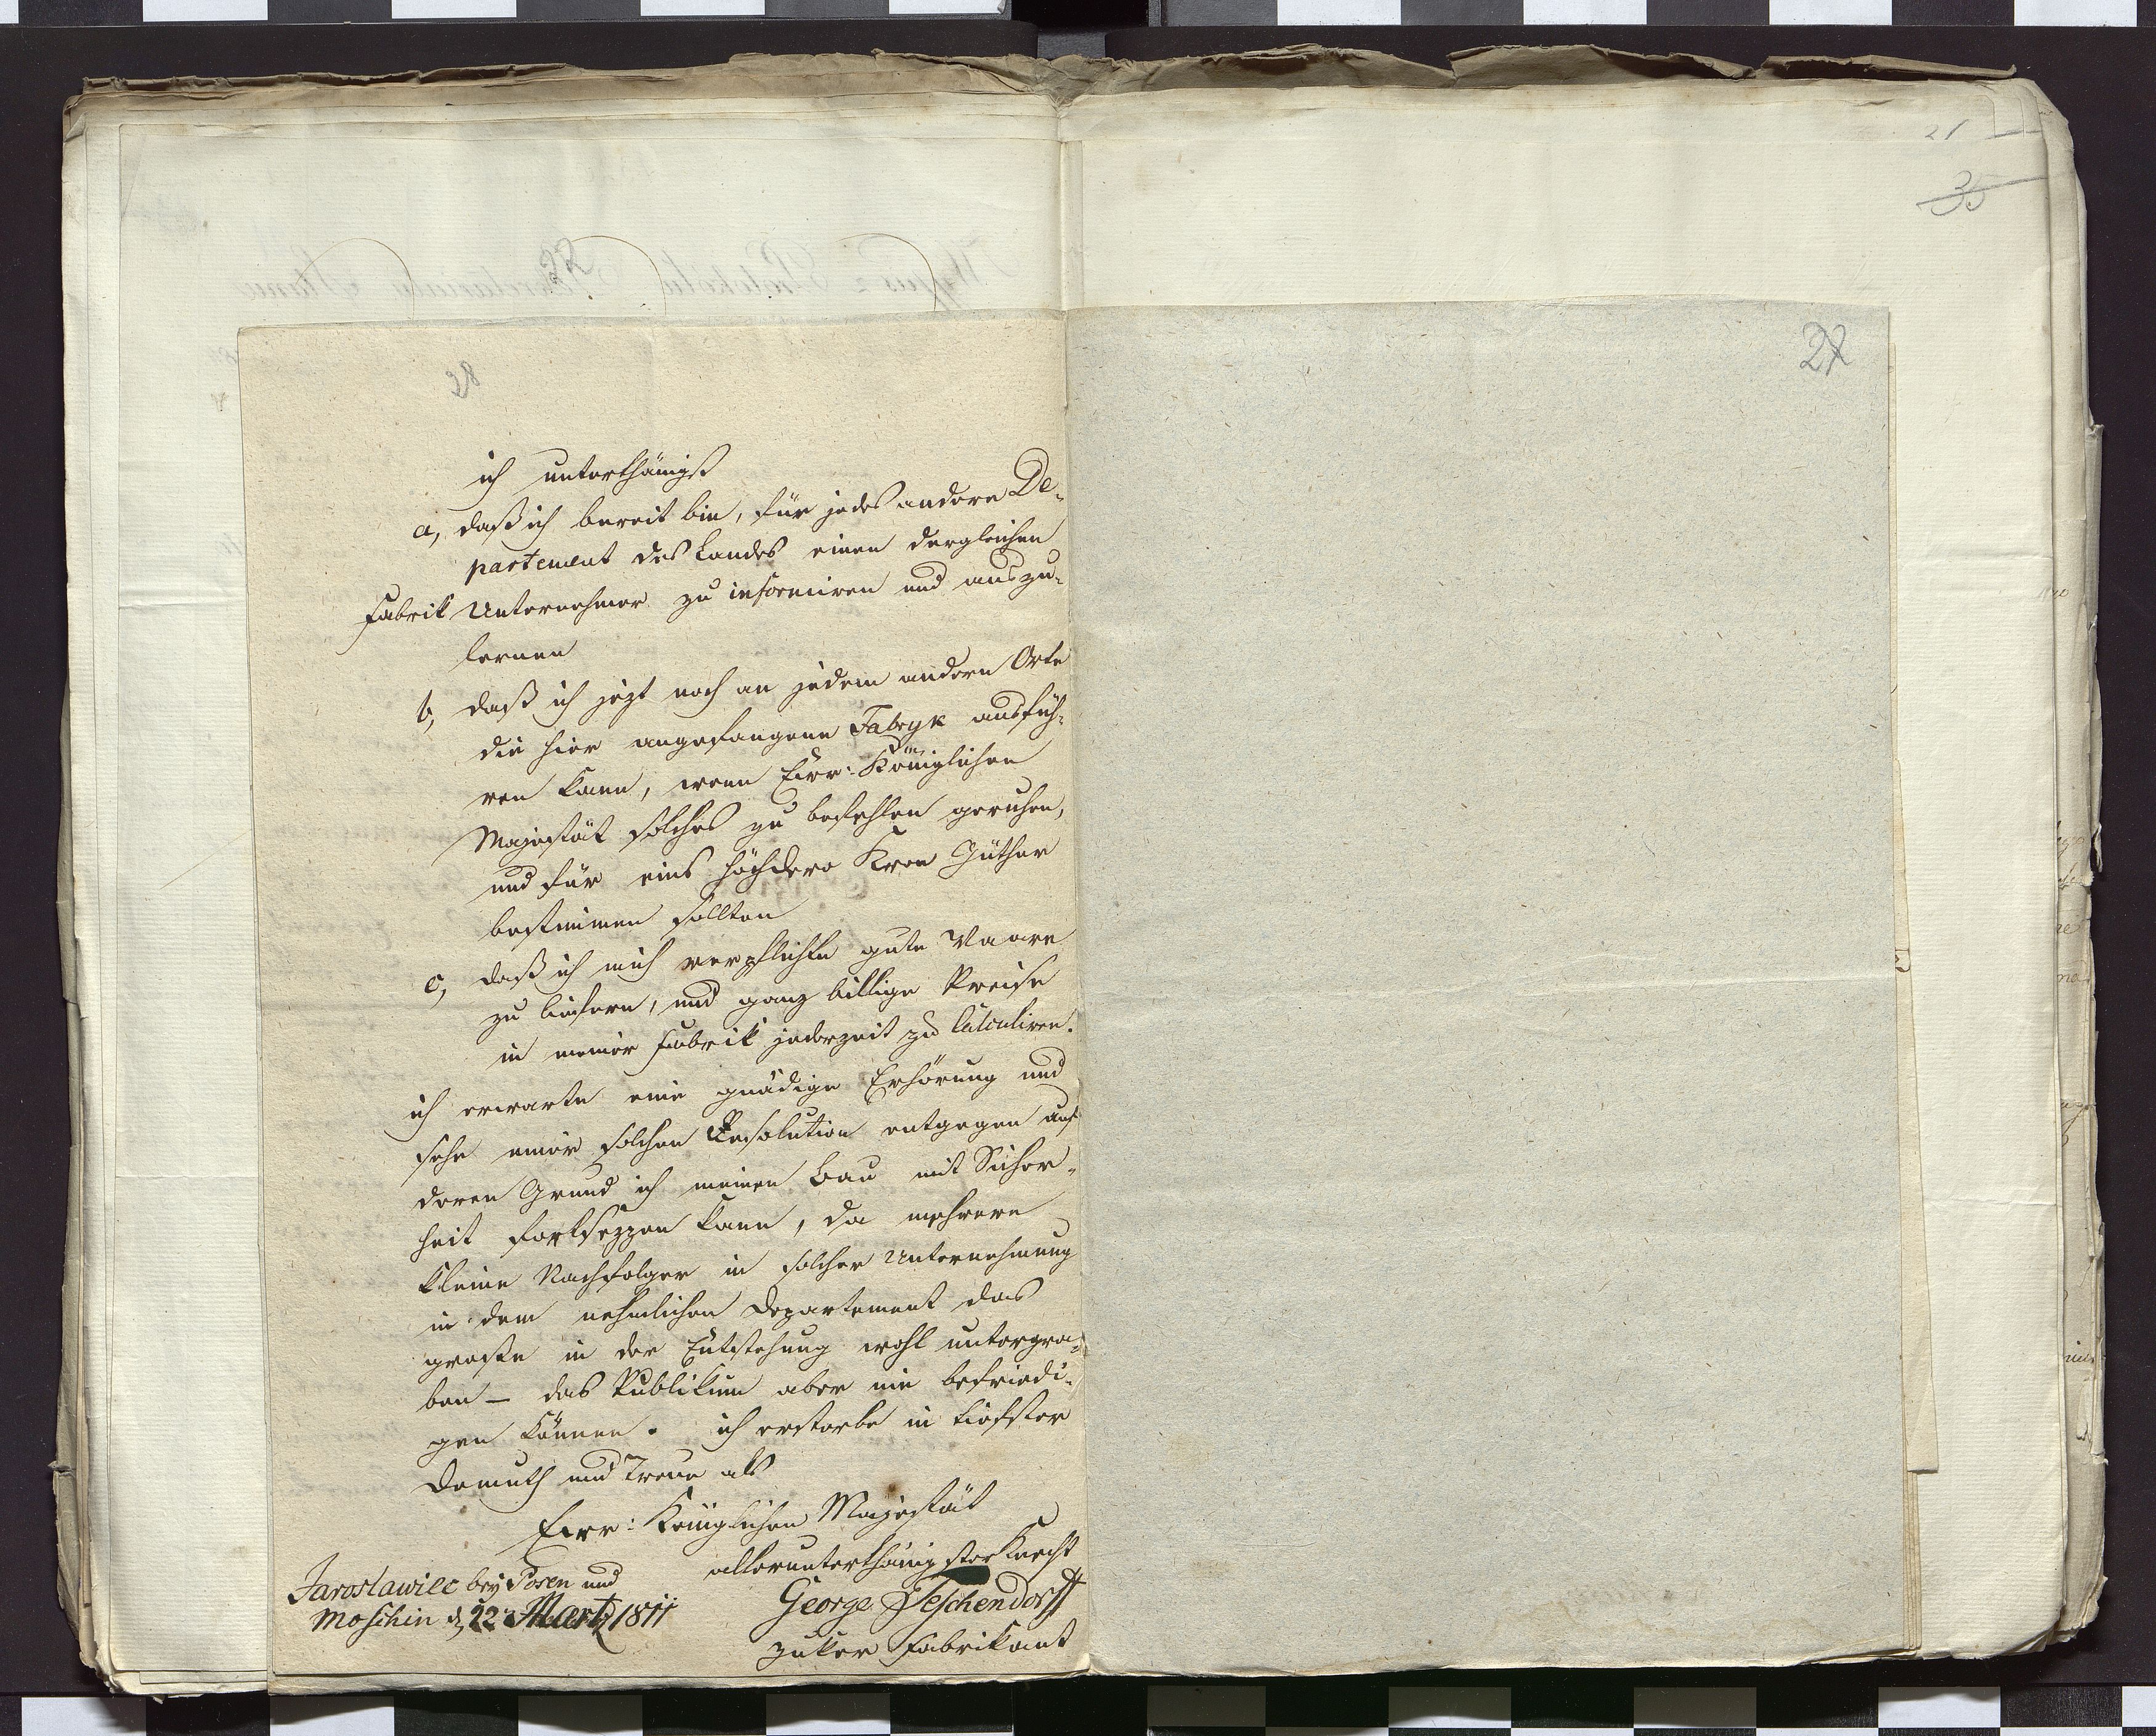 28
ich unterthänigst
a, daß ich bereit bin, für jedes andere De-
partement des Landes einen dergleichen
Fabrik Unternehmer zu informiren und auszu-
lernen
b, daß ich jezt noch an jedem andern Orte
die hier angefangene Fabryk ausfüh-
ren kann, wenn Eur: Königlichen
Majestät solches zu befehlen geruhen,
und für eins höchdero Kron Güther
bestimmen sollten
c, daß ich mich verpflichte gute Waare
zu liefern, und ganz billige Preise
in meiner Fabrik jederzeit zu Calculiren.
ich erwarte eine gnädige Erhörung und
sehe einer solchen Resolution entgegen auf
deren Grund ich meinen Bau mit Sicher-
heit fortsezzen kann, da mehrere
kleine Nachfolger in solcher Unternehmung
in dem nehmlichen Departement das
große in der Entstehung wohl untergra-
ben - das Publikum aber nie befriedi-
gen können. ich ersterbe in tiefster
Demuth und Treue als
Eur: Königlichen Majestät
allerunterthänigster Knecht
Jaroslawiec bey Posen und
Moschin d 22 Martz 1811
George Jeschendorff
Zuker Fabrikant
21
35
27